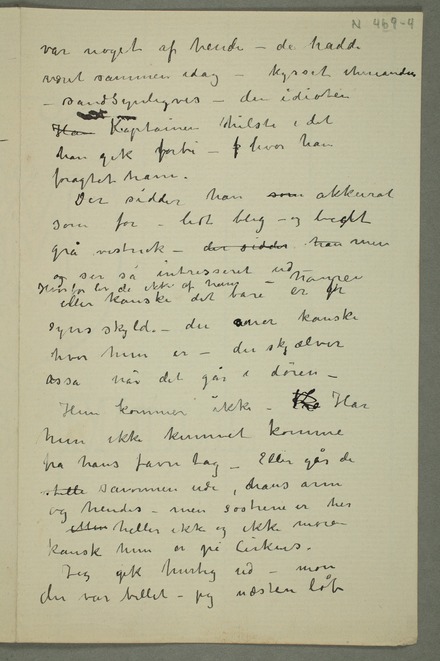 N 469-4
var noget af hende – de hadde
været sammen idag – kysset hinanden
– sandsynligvis – den idioten
Han Kaptainen hilste i det
han gik forbi – hvor han
fragtet ham.
Der sidder han som akkurat
som før – lidt bleg – og
grå – der sidder han men
og ser så intresseret ud –
Hvorfor ler de ikke af ham –
eller kanske det bare er
syns skyld. – du kanske
hvor hun er – du skjælver
assa når det går i døren –
Hun kommer ikke – Har
hun ikke kunnet komme
fra hans favn tag – Eller går de
sammen ude, hans arm
og hendes – men søstrene er her
heller ikke og ikke moren
kansk hun er på Cirkus.
Jeg gik hurtig ud – mon
der var billet – jeg næsten løb